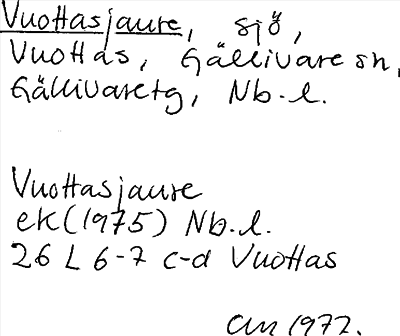 Vuottasjaure, sjö,
Vuottas, Gällivare sn,
Gällivaretg, Nb.l.
Vuottasjaure
ek (1975) Nb.l.
26 L 6-7 c-d Vuottas
1977.